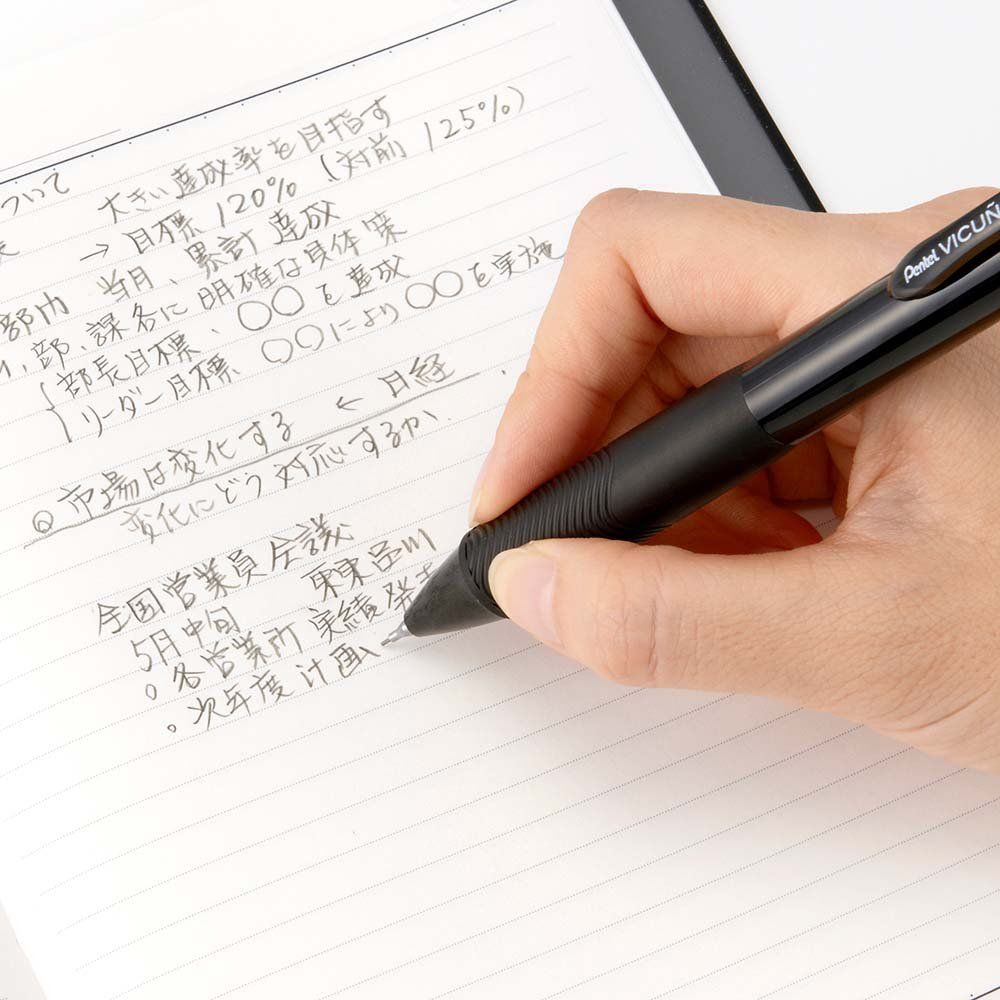 ついて
大きい達成率を目指す
→ 目標 120% (対前 125%)
部内 当月、累計達成
部、課各に明確な具体策
部長目標、○○を達成
リーダー目標 ○○により○○を実施
◎ 市場は変化する ← 日経
変化にどう対応するか、
全国営業員会議
5月中旬 東品川
○ 各営業所 実績発
。次年度計画
Pentel VICUÑ